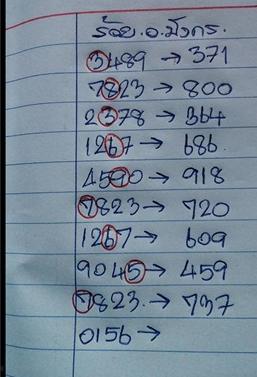 ร้อย.อ.มังกร.
3489 → 371
7823 → 800
2378 → 364
1267 → 686.
4590 → 918
7823 → 720
1267 → 609
9045 → 459
7823. → 737
0156 →